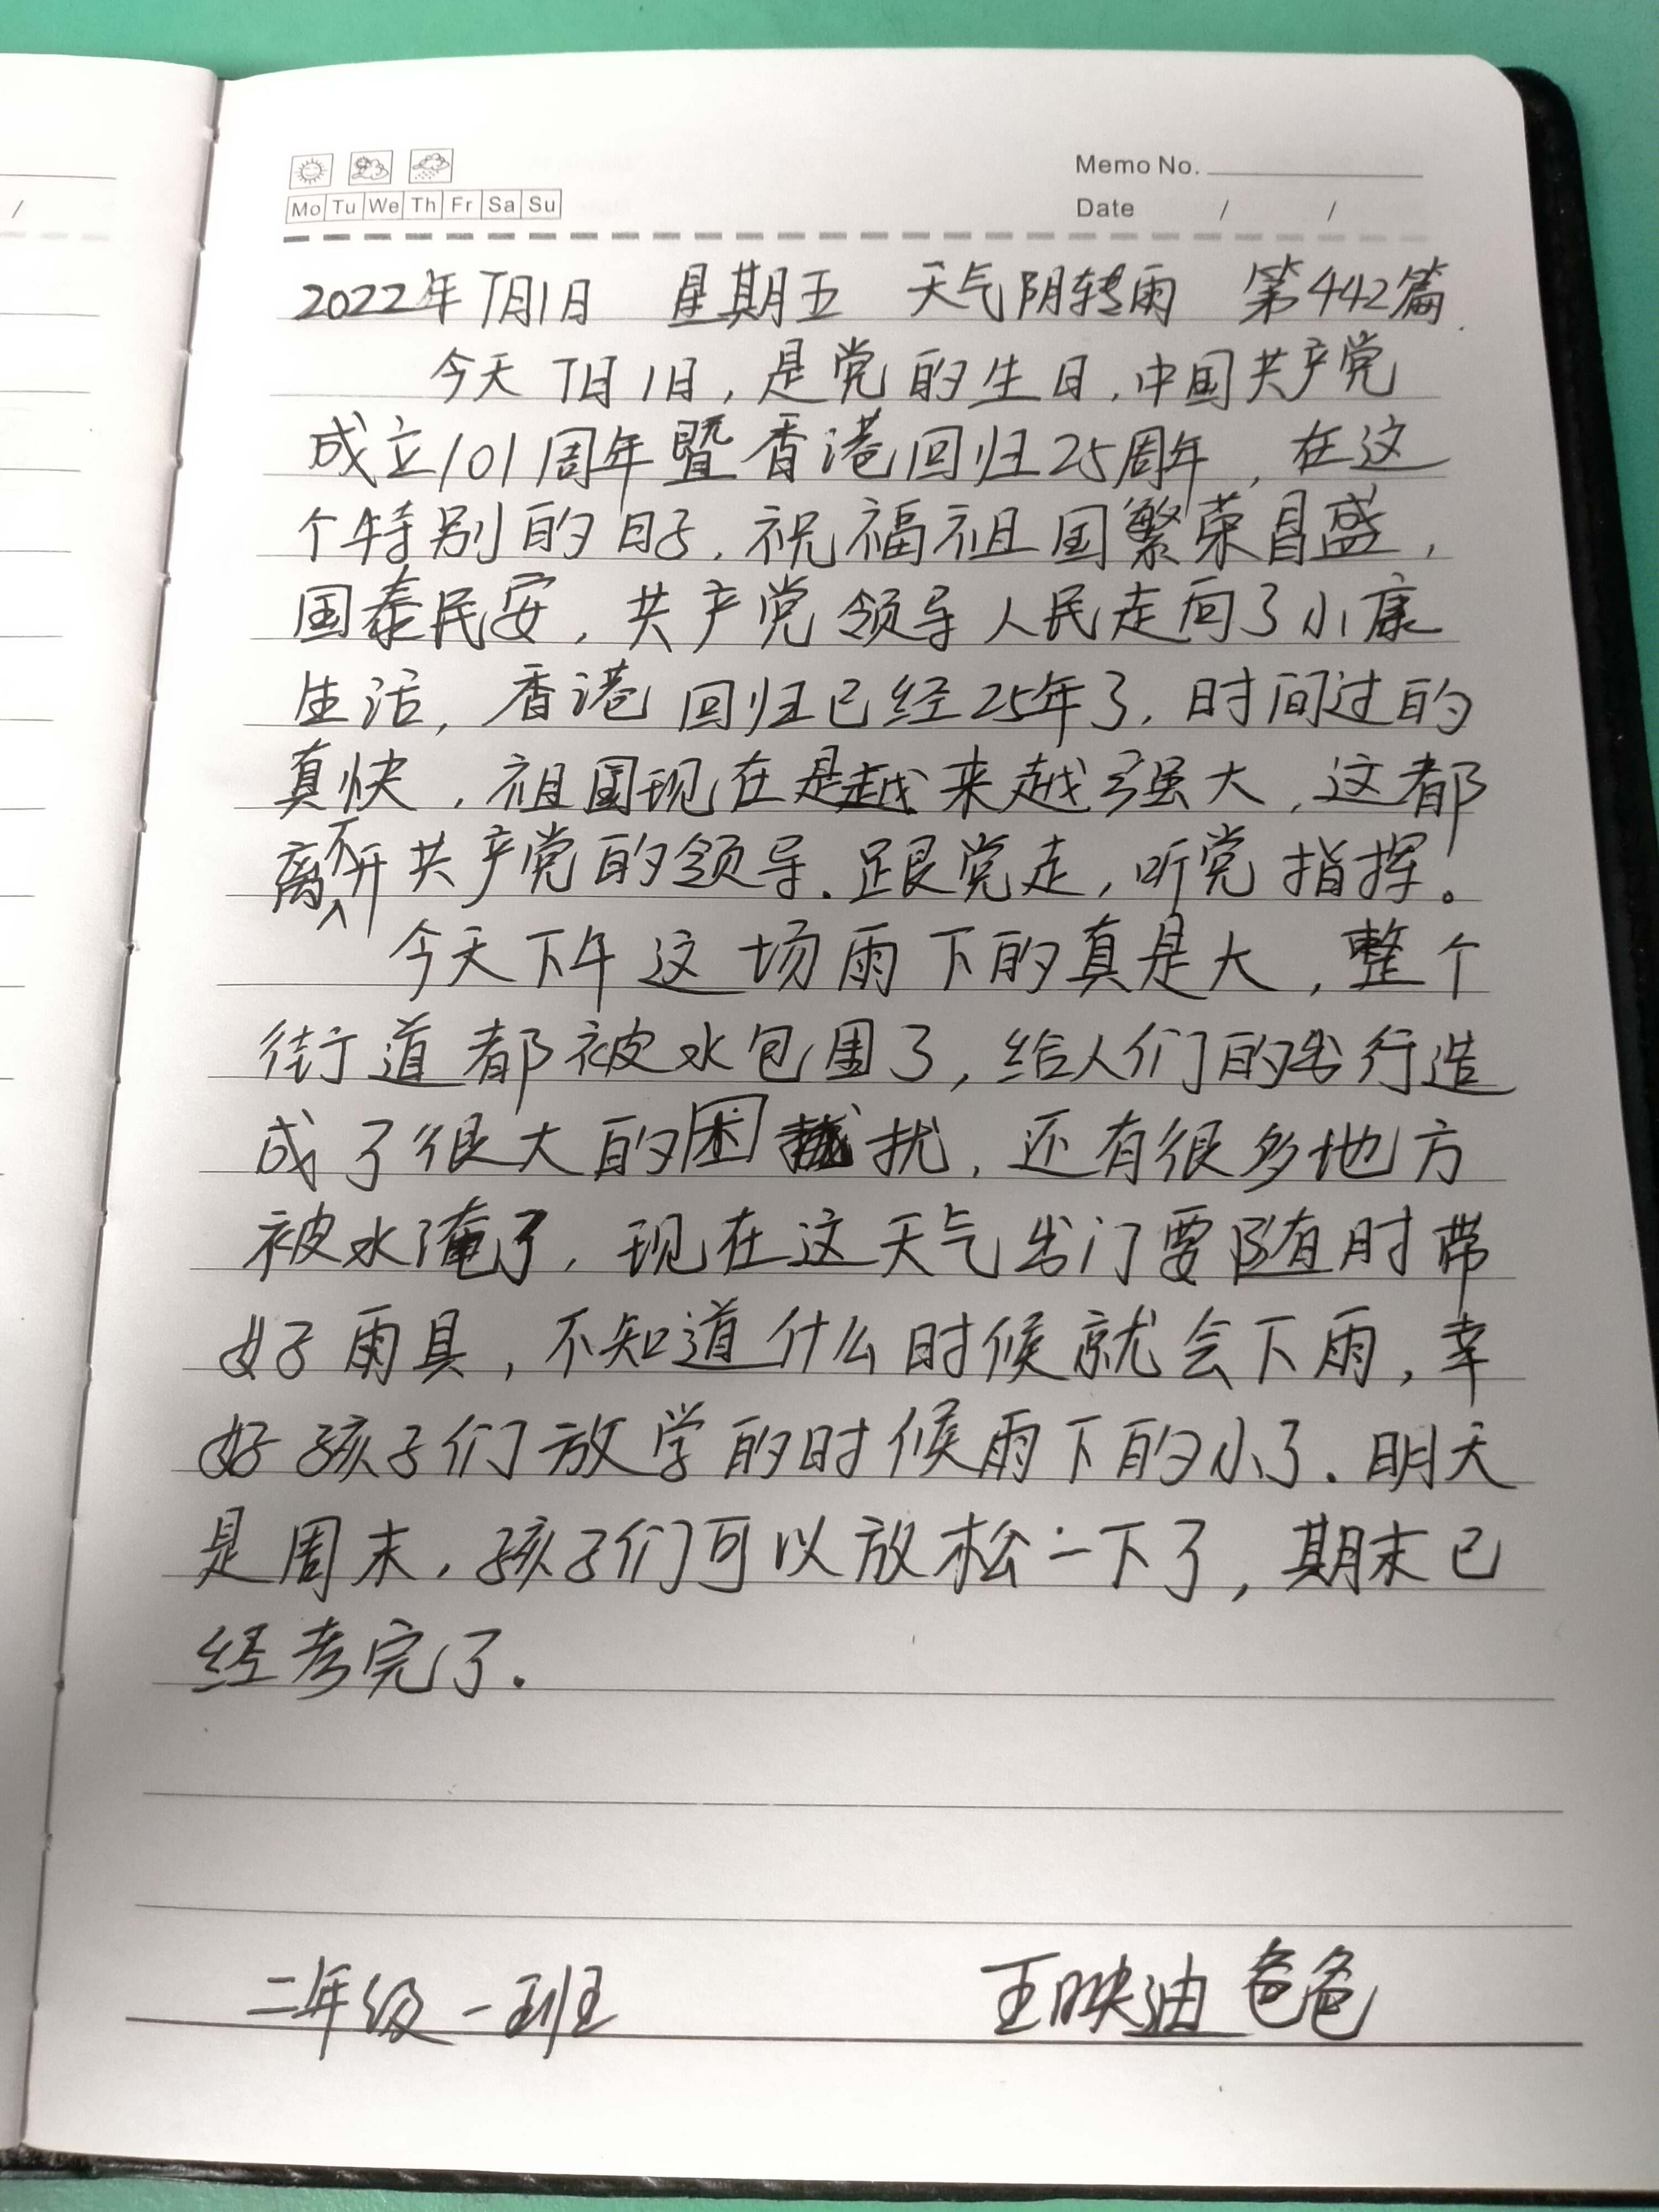 Memo No.
Mo Tu We Th Fr Sa Su
Date / /
2022年7月1日 星期五 天气阴转雨 第442篇
今天7月1日,是党的生日,中国共产党
成立101周年暨香港回归25周年,在这
个特别的日子,祝福祖国繁荣昌盛,
国泰民安,共产党领导人民走向了小康
生活,香港回归已经25年了,时间过的
真快,祖国现在是越来越强大,这都
离不开共产党的领导.跟党走,听党指挥。
今天下午这场雨下的真是大,整个
街道都被水包围了,给人们的出行造
成了很大的困扰,还有很多地方
被水淹了,现在这天气出门要随时带
好雨具,不知道什么时候就会下雨,幸
好孩子们放学的时候雨下的小了.明天
是周末,孩子们可以放松一下了,期末已
经考完了.
二年级一班 王映迪爸爸